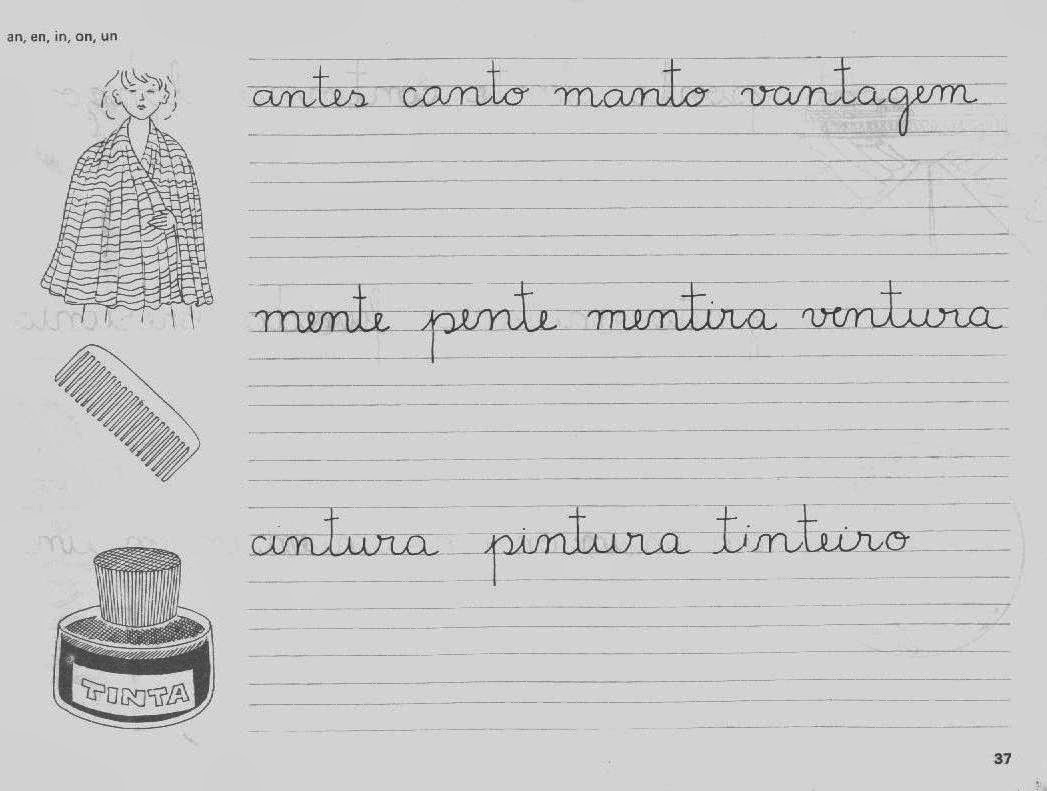 an, en, in, on, un
antes canto manto vantagem
mente pente mentira ventura
cintura pintura tinteiro
TINTA
37